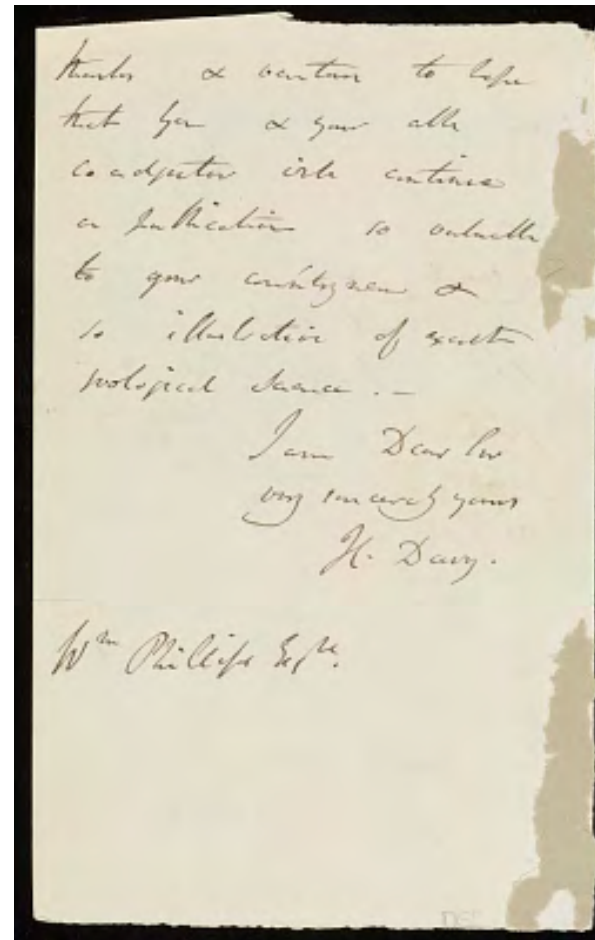 thanks & venture to hope
that you & your able
coadjutor will continue
a publication so valuable
to your countrymen &
so illustrative of exact
geological science. —
I am Dear Sir
very sincerely yours
H. Davy.
Wm Phillips Esqre.